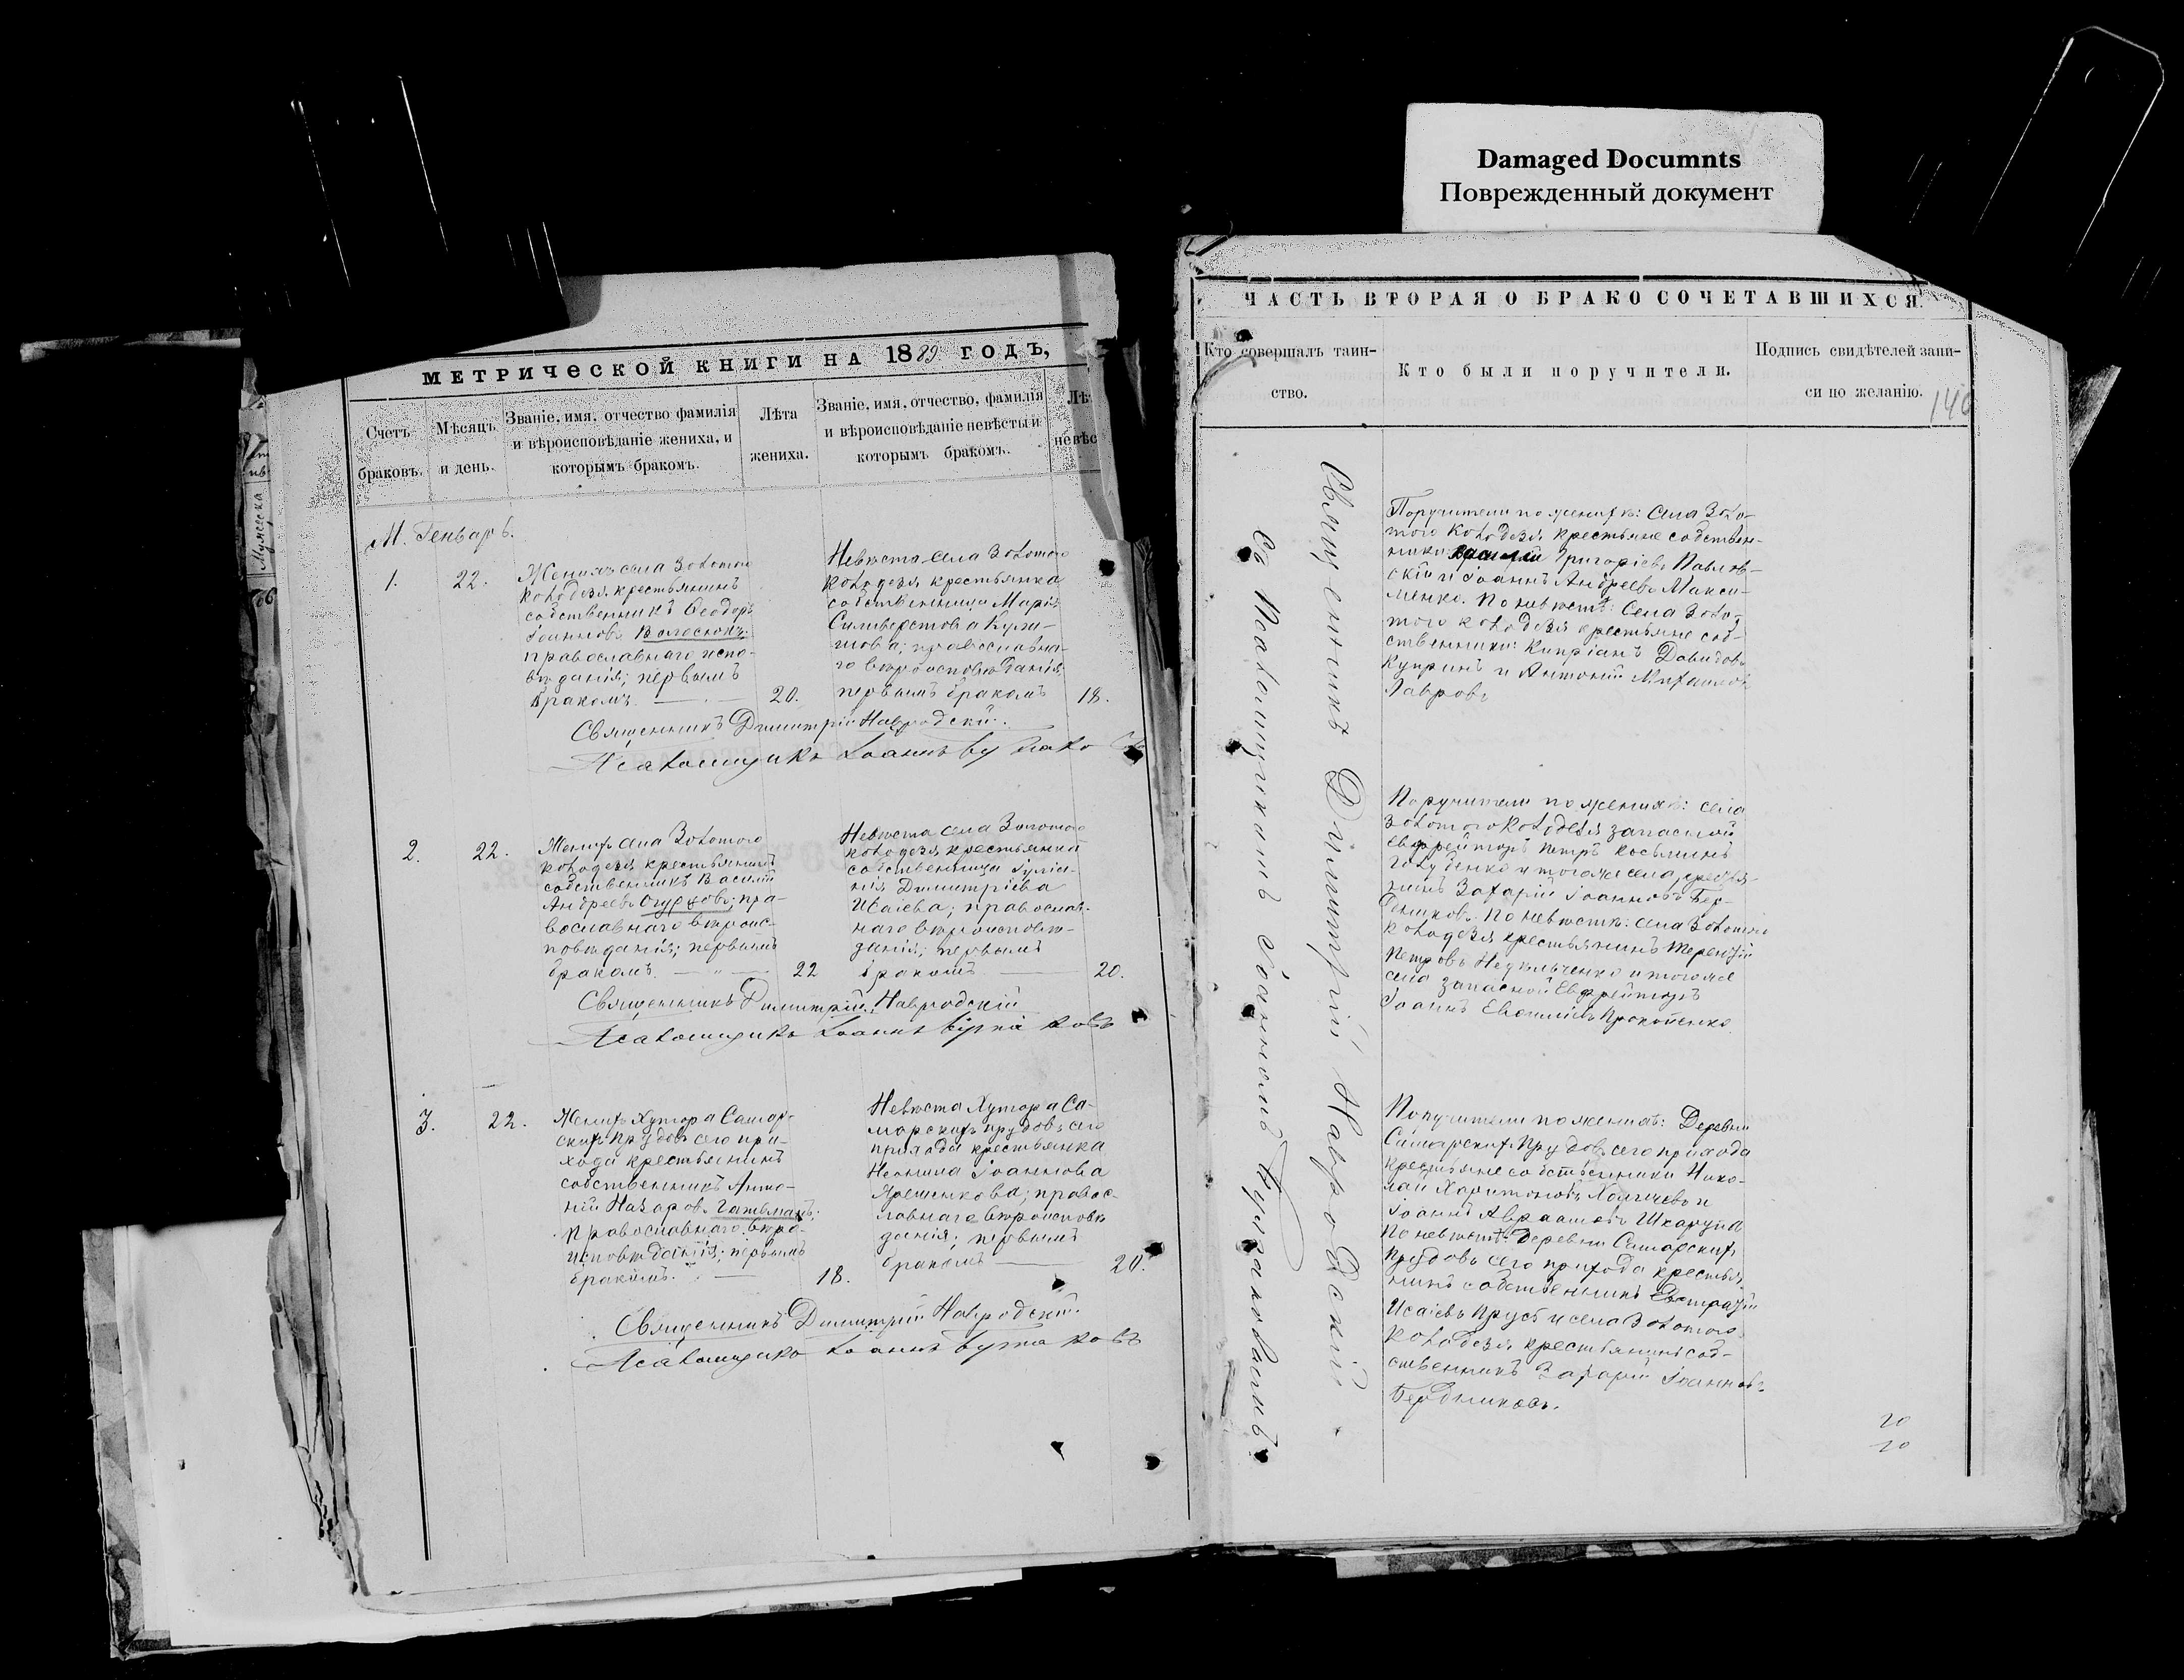 Damaged Documnts
Поврежденный документ
МЕТРИЧЕСКОЙ КНИГИ НА 1889 ГОДЪ,
Счетъ браковъ.
Мѣсяцъ и день.
Званіе, имя, отчество фамилія
и вѣроисповѣданіе жениха, и
которымъ бракомъ.
Лѣта
жениха.
Званіе, имя, отчество, фамилія
и вѣроисповѣданіе невѣсты и
которымъ бракомъ.
Лѣ
невѣс
М. Генварь.
1.
22.
Женихъ села Золотого
Колодезя крестьянинъ
собственникъ Ѳеодоръ
Іоанновъ
православнаго испо-
вѣданія; первымъ
бракомъ.
20.
Невѣста села Золотого
Колодезя крестьянка
собственница Марія
Силиверстова Кули-
шова; православна-
го вѣроисповѣданія;
первымъ бракомъ
18.
Священникъ Димитрій Навродскій.
Псаломщикъ Іоаннъ
2.
22.
Женихъ села Золотого
Колодезя крестьянинъ
собственникъ Василій
Андреевъ Огурцовъ; пра-
вославнаго вѣроис-
повѣданія; первымъ
бракомъ.
22
Невѣста села Золотого
Колодезя крестьянка
собственница Іуліа-
нія Димитріева
Исаіева; православ-
наго вѣроисповѣ-
данія; первымъ
бракомъ
20.
Священникъ Димитрій Навродскій
Псаломщикъ Іоаннъ
3.
22.
Женихъ Хутора Самар-
скихъ прудовъ сего при-
хода крестьянинъ
собственникъ Анто-
ній Назаровъ Гатьманъ;
православнаго вѣро-
исповѣданія; первымъ
бракомъ.
18.
Невѣста Хутора Са-
марскихъ прудовъ сего
прихода крестьянка
Неонила Іоаннова
православ-
наго вѣроисповѣ
данія; первымъ
бракомъ
20.
Священникъ Димитрій Навродскій.
Псаломщикъ Іоаннъ
Мужеска
ЧАСТЬ ВТОРАЯ О БРАКОСОЧЕТАВШИХСЯ.
Кто совершалъ таин-
ство.
Кто были поручители.
Подпись свидѣтелей запи-
си по желанію.
140
Священникъ Димитрій Навродскій.
Съ Псаломщикомъ Іоанномъ
Поручители по женихѣ: Села Золо-
того Колодезя крестьяне собствен-
ники: Григорьевъ Павлов-
скій и Іоаннъ Андреевъ Макси-
менко. По невѣстѣ: Села Золо-
того Колодезя крестьяне соб-
ственники: Кипріанъ Давидовъ
Купринъ и Антоній Михаиловъ
Лавровъ
Поручители по женихѣ: села
Золотого Колодезя запасной
Ефрейторъ Петръ Косьминъ
Голубенко и тогоже села крестья-
нинъ Захарій Іоанновъ Бер-
дниковъ. По невѣстѣ: села Золотого
Колодезя крестьянинъ Терентій
Петровъ и тогоже
села запасной Ефрейторъ
Іоаннъ Прокопенко
Поручители по женихѣ: Деревни
Самарскихъ Прудовъ сего прихода
крестьяне собственники Нико-
лай Харитоновъ и
Іоаннъ Авраамовъ Шкарупа
По невѣстѣ: Деревни Самарскихъ
Прудовъ сего прихода крестья-
нинъ собственникъ Евстратій
Исаіевъ Прусъ и села Золотого
Колодезя крестьянинъ соб-
ственникъ Захарій Іоанновъ
Бердниковъ.
20
20